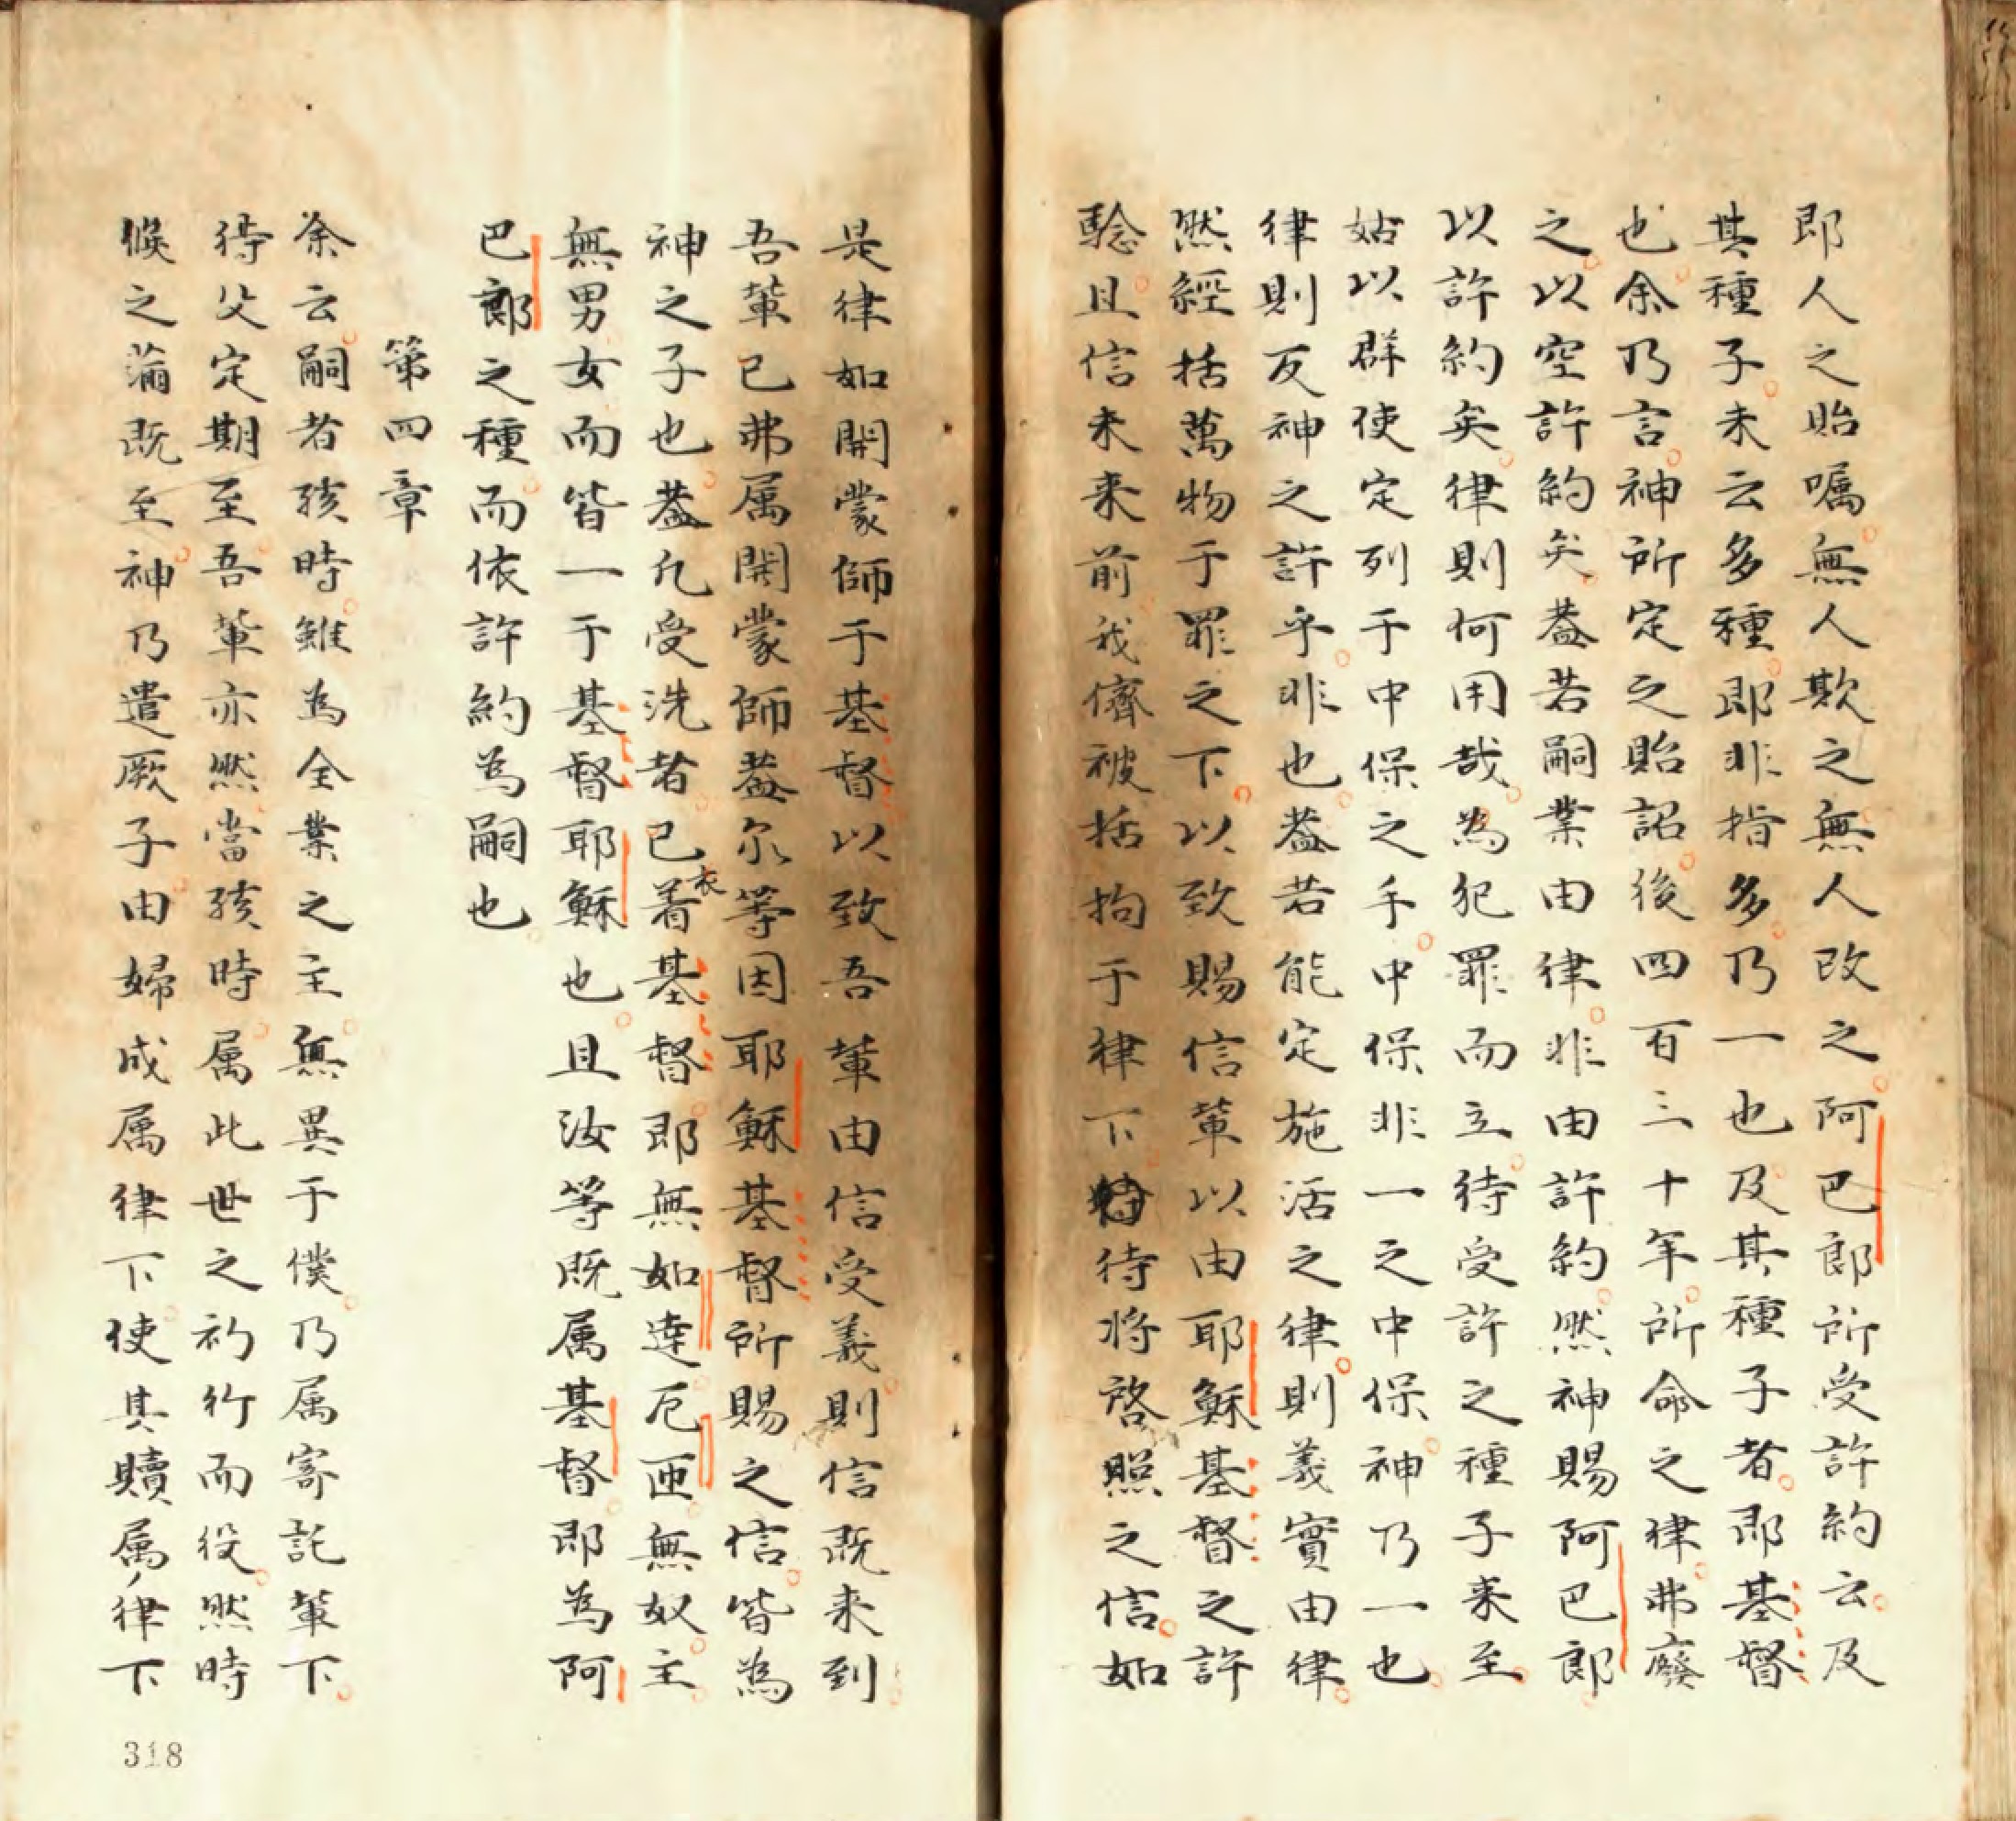 即人之貽囑無人欺之無人改之阿巴郎所受許約云及
其種子未云多種即非指多乃一也及其種子者即基督
也余乃言神所定之貽詔後四百三十年所命之律弗廢
之以空許約矣蓋若嗣業由律非由許約然神賜阿巴郎
以許約矣律則何用哉為犯罪而立待受許之種子来至
姑以群使定列于中保之手中保非一之中保神乃一也
律則反神之許乎非也蓋若能定施活之律則義實由律
然經括萬物于罪之下以致賜信軰以由耶穌基督之許
騐且信未来前我儕被括拘于律下待将啓照之信如
是律如開蒙師于基督以致吾軰由信受義則信既来到
吾軰已弗属開蒙師蓋尔等因耶穌基督所賜之信皆為
神之子也蓋凢受洗者已着衣基督即無如達厄匝無奴主
無男女而皆一于基督耶穌也且汝等既属基督即為阿
巴郎之種而依許約為嗣也
第四章
余云嗣者孩時雖為全業之主無異于僕乃属寄託軰下
待父定期至吾軰亦然當孩時属此世之礿行而役然時
候之滿既至神乃遣厥子由婦成属律下使其贖属律下
318